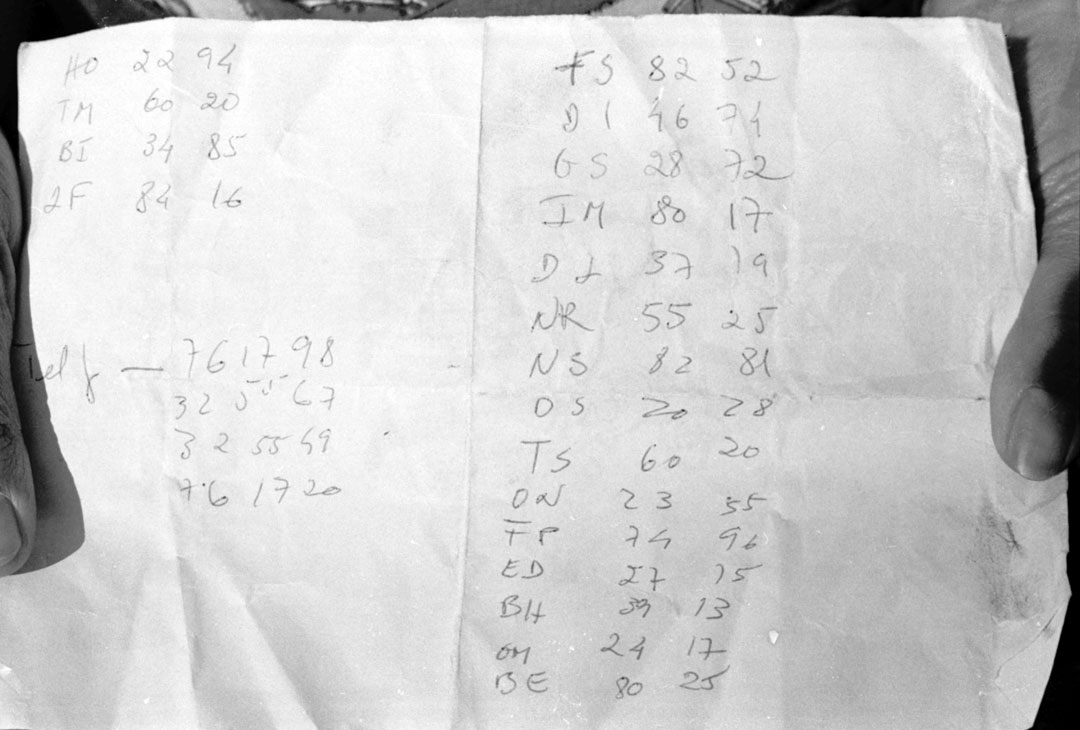 HO 22 94
TM 60 20
BI 34 85
2F 84 16
Telf — 76 17 98
32 55 67
32 55 49
76 17 20
FS 82 52
DI 46 74
GS 28 72
IM 80 17
DJ 37 19
NR 55 25
NS 82 81
OS 20 28
TS 60 20
ON 23 55
FP 74 96
ED 27 15
BH 39 13
GM 24 17
BE 80 25